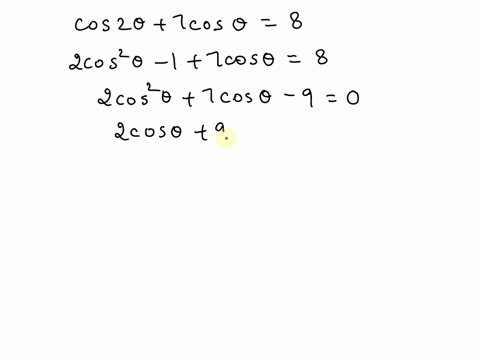 cos2θ + 7cosθ = 8
2cos²θ - 1 + 7cosθ = 8
2cos²θ + 7cosθ - 9 = 0
2cosθ + 9